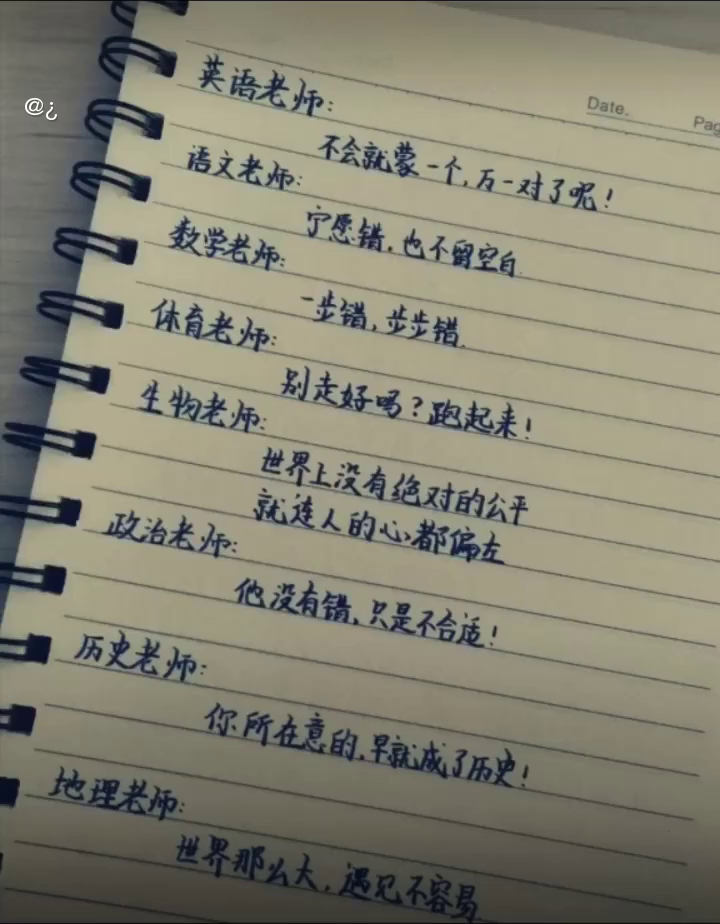 @¿
Date.
Pag
英语老师:
不会就蒙一个,万一对了呢!
语文老师:
宁愿错,也不留空白.
数学老师:
一步错,步步错.
体育老师:
别走好吗?跑起来!
生物老师:
世界上没有绝对的公平
就连人的心都偏左
政治老师:
他没有错,只是不合适!
历史老师:
你所在意的,早就成了历史!
地理老师:
世界那么大,遇见不容易